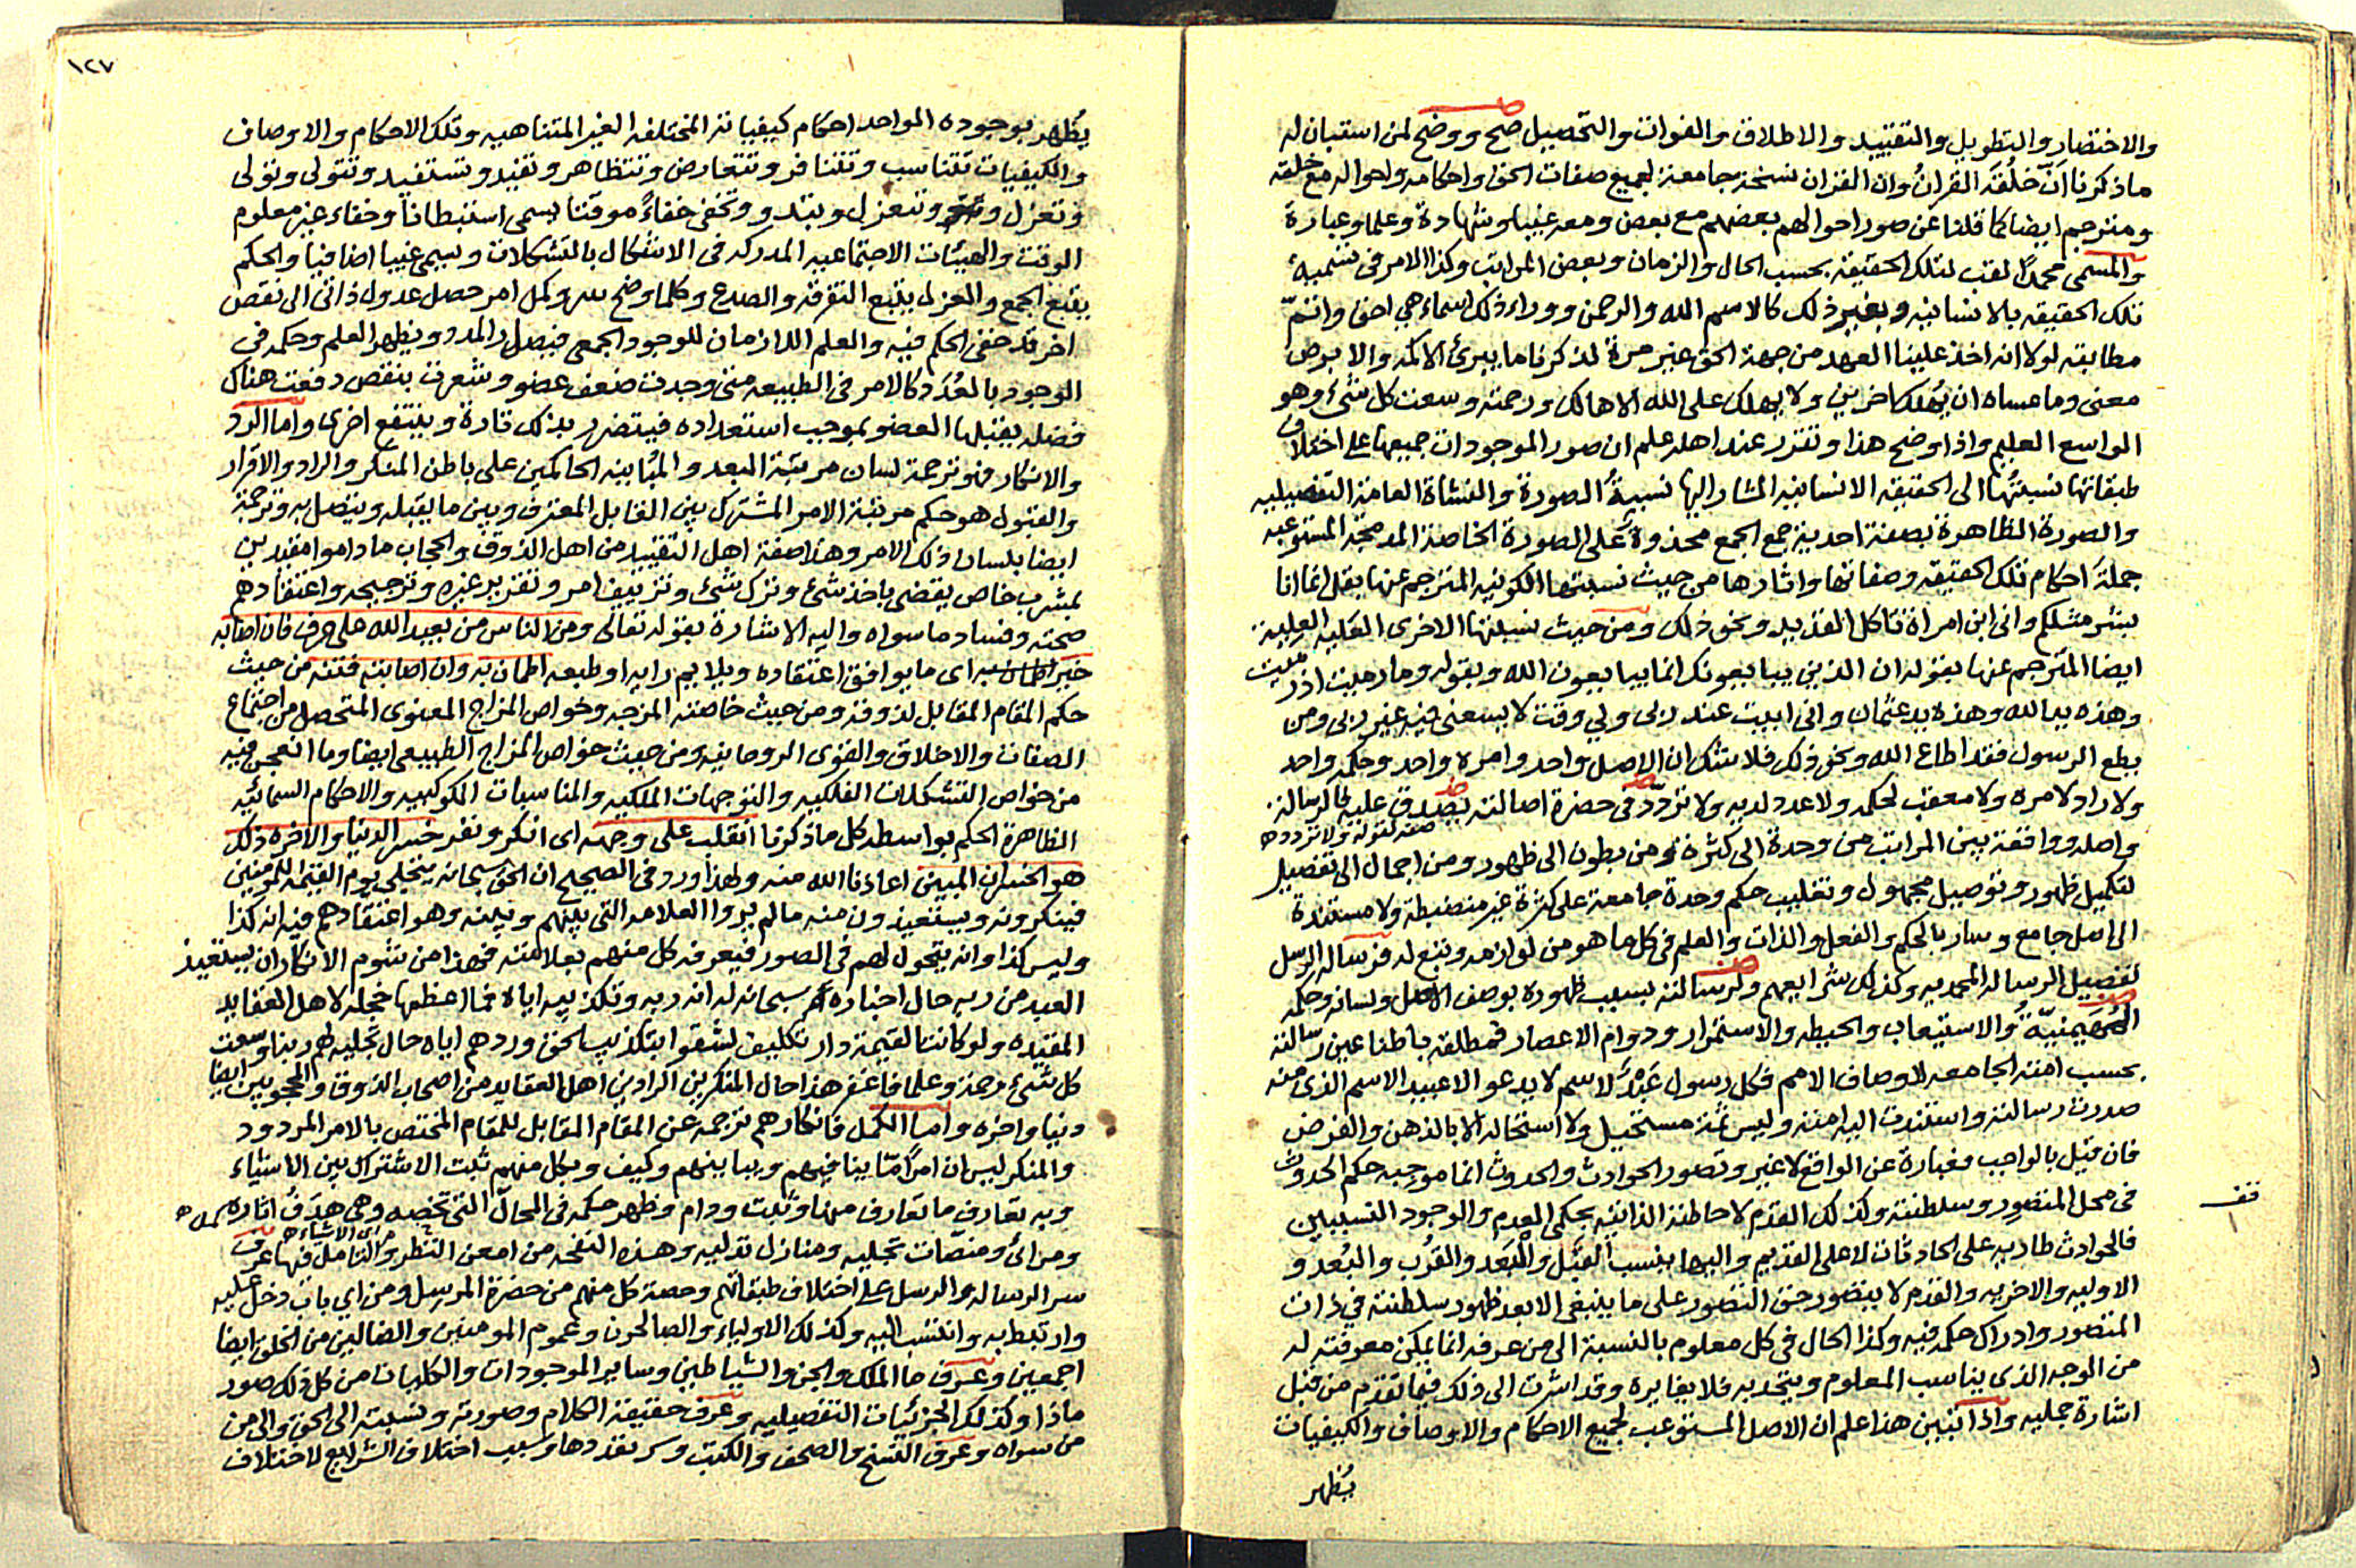 والاختصار والتطويل والتقييد والاطلاق والفوات والتحصيل صح ووضح لمن استبان له
ماذكرنا انّ خلقَه القرانُ وان القران نسخة جامعة لجميع صفات الحق واحكامه واحواله مع خلقه
ومترجم ايضا كما قلنا عن صور احوالهم بعضهم مع بعض ومعه غيبا وشهادة وعلما وعبارة
والمسمى محمدًا لقب لتلك الحقيقة بحسب الحال والزمان وبعض المراتب وكذا الامر فى تسمية
تلك الحقيقه بالانسانيه وبغير ذلك كالاسم الله والرحمن ووراء ذلك اسماء هي احق واتمّ
مطابقه لولا انه اخذ علينا العهد من جهة الحق غير مرة لذكرنا ما يبرئ الاكمه والابرص
معنى وما عساه ان يهلك اخرين ولا يهلك على الله الا هالك ورحمته وسعت كل شئ وهو
الواسع العليم واذا وضح هذا وتقرر عند اهله علم ان صور الموجودات جميعها على اختلاف
طبقاتها نسبتُها الى الحقيقه الانسانيه المشار اليها نسبةُ الصورة والنشاة العامة التفصيليه
والصورة الظاهرة بصفة احدية جمع الجمع محذوة على الصورة الخاصة المدمجة المستوعبه
جملةَ احكام تلك الحقيقه وصفاتها واثارها من حيث نسبتها الكونيه المترجم عنها بقل انما انا
بشر مثلكم وانى ابن امراة تاكل القديد ونحو ذلك ومن حيث نسبتها الاخرى العَليه العليه
ايضا المترجم عنها بقوله ان الذين يبايعونك انما يبايعون الله وبقوله وما رميت اذ رميت
وهذه يد الله وهذه يد عثمان وانى ابيت عند ربى ولي وقت لا يسعنى فيه غير ربى ومن
يطع الرسول فقد اطاع الله ونحو ذلك فلا شك ان الاصل واحد وامره واحد وحكمه واحد
ولا راد لامره ولا معقب لحكمه ولا عدد لديه ولا تردّد فى حضرة اصالته يصدق عليه فالرسالة
صفة لقوله ولا تردد
واصله وواقفة بين المراتب من وحدة الى كثرة ومن بطون الى ظهور ومن اجمال الى تفصيل
لتكميل ظهور وتوصيل مجهول وتغليب حكم وحدة جامعة على كثرة غير منضبطة ولا مستندة
الى اصل جامع وسار بالحكم والفعل والذات والعلم فى كل ما هو من لوازمه وتبع له فرسالة الرسل
تفصيل الرسالة المحمديه وكذلك شرايعهم ولرسالته بسبب ظهوره بوصف الاصل ولسانه وحكمه
المُهَيمنيّةُ والاستيعاب والحيطه والاستمرار ودوام الاعصار فمطلقه باطنا عين رسالته
بحسب امته الجامعه لاوصاف الامم فكل رسول عَبْدٌ لاسم لا يدعو الا عبيد الاسم الذى منه
صدرت رسالته واستندت اليه امته وليس ثمة مستحيل ولا استحالة الا بالذهن والفرض
فان قيل بالواجب فعبارة عن الواقع لا غير وتصور الحوادث والحدوث انما موجبه حكم الحدوث
فى محل المتصور وسلطنته وكذلك القدم لاحاطته الذاتية بحكمى العدم والوجود النسبيين
فالحوادث طارية على الحادثات لا على القديم واليها بنسب القَبْل والبَعْد والقُرب والبُعد و
الاوليه والاخريه والقدم لا يتصور حق التصور على ما ينبغى الا بعد ظهور سلطنته في ذات
المتصور وادراك حكمه فيه وكذا الحال فى كل معلوم بالنسبة الى من عرفه انما يمكن معرفته له
من الوجه الذى يناسب المعلوم ويتحد به فلا يغايره وقد اشرت الى ذلك فيما تقدم من قبل
اشارة جمليه واذا تبين هذا علم ان الاصل المستوعب لجميع الاحكام والاوصاف والكيفيات
يُظهر
قف
١٢٧
يُظهر بوجوده الواحد احكام كيفياته المختلفه الغير المتناهيه وتلك الاحكام والاوصاف
والكيفيات تتناسب وتتنافر وتتعارض وتتظاهر وتفيد وتستفيد وتتولى وتولى
وتعزل وتنعزل وتبدو وتخفى خفاءً موقتا يسمى استبطانا وخفاء غير معلوم
الوقت والهيئات الاجتماعيه المدركه فى الاشكال بالتشكلات ويسمى غيبا اضافيا والحكم
يتبع الجمع والعزل يتبع التفرقه والصدع وكلما وضح سر وكمل امر حصل عدول ذاتى الى نقص
اخر قد خفى الحكم فيه والعلم اللازمان للوجود الجمعى فيصل المدد ويظهر العلم وحكمه في
الوجود بالعُدَد كالامر فى الطبيعه متى وجدت ضعف عضو وشعرت بنقص دفعت هناك
فضله يقبلها العضو بموجب استعداده فيتضرر بذلك تارة وينتفع اخرى واما الرد
والانكار فهو ترجمة لسان مرتبة البعد والمُباينه الحاكمين على باطن المنكر والراد والاقرار
والقبول هو حكم مرتبة الامر المشترك بين القابل المعترف وبين ما يقبله ويتصل به وترجمة
ايضا بلسان ذلك الامر وهذا صفة اهل التقييد من اهل الذوق والحجاب ماداموا مقيدين
بمشرب خاص يقضى باخذ شئ وترك شئ وتزييف امر وتقرير غيره وترجيحه واعتقادهم
صحته وفساد ما سواه واليه الاشارة بقوله تعالى ومن الناس من يعبد الله على حرف فان اصابه
خير اطمان به اى ما يوافق اعتقاده ويلايم رايه او طبعه اطمان به وان اصابته فتنه من حيث
حكم المقام المقابل لذوقه ومن حيث خاصته المزجه وخواص المزاج المعنوى المتحصل من اجتماع
الصفات والاخلاق والقوى الروحانيه ومن حيث خواص المزاج الطبيعى ايضا وما انعجن فيه
من خواص التشكلات الفلكيه والتوجهات الملكيه والمناسبات الكوكبيه والاحكام السمائيه
الظاهرة الحكم بواسطه كل ما ذكرنا انقلب على وجهه اى انكر ونفر خسر الدنيا والاخره ذلك
هو الخسران المبين اعاذنا الله منه ولهذا ورد فى الصحيح ان الحق سبحانه يتجلى يوم القيمه للمومنين
فينكرونه ويستعيذون منه ما لم يروا العلامه التى بينهم وبينه وهو اعتقادهم فيه انه كذا
وليس كذا وانه يتحول لهم فى الصور فيعرفه كل منهم بعلامته فهذا من شوم الانكار ان يستعيذ
العبد من ربه حال اخباره سبحانه له انه ربه وتكذيبه اياه فما اعظمها خجلة لاهل العقايد
المقيده ولو كانت القيمة دار تكليف لشقوا بتكذيب الحق وردهم اياه حال تجليه لهم ربنا وسعت
كل شئ رحمة وعلما فاغفر هذا حال المنكرين الرادين اهل العقايد من اصحاب الذوق والمحجوبين ايضا
دنيا واخره واما الكمل فانكارهم ترجمة عن المقام المقابل للمقام المختص بالامر المردود
والمنكر ليس ان امرًا مّا ينافيهم ويباينهم وكيف وبكل منهم ثبت الاشتراك بين الاشياء
وبه تعارف ما تعارف منها وثبت ودام وظهر حكمه فى المحالّ التى تخصه وهى هدَفُ اثاره
من الاشياء
ومرائ ومنصّات تجليه ومنازل تدليه وهذه النفحه من امعن النظر والتامل فيها عرف
سر الرساله والرسل على اختلاف طبقاتهم وحصة كل منهم من حضرة المرسل ومن اي باب دخل عليه
وارتبط به وانتسب اليه وكذلك الاولياء والصالحون وعموم المومنين والضالين من الخلق ايضا
اجمعين وعرف ما الملك والجن والشياطين وساير الموجودات والكليات من كل ذلك صور
ماذا وكذلك الجزئيات التفصيليه وعرف حقيقة الكلام وصورته ونسبته الى الحق والى من
من سواه وعرف النسخ والصحف والكتب وسر تعددها وسبب اختلاف الشرايع لاختلاف